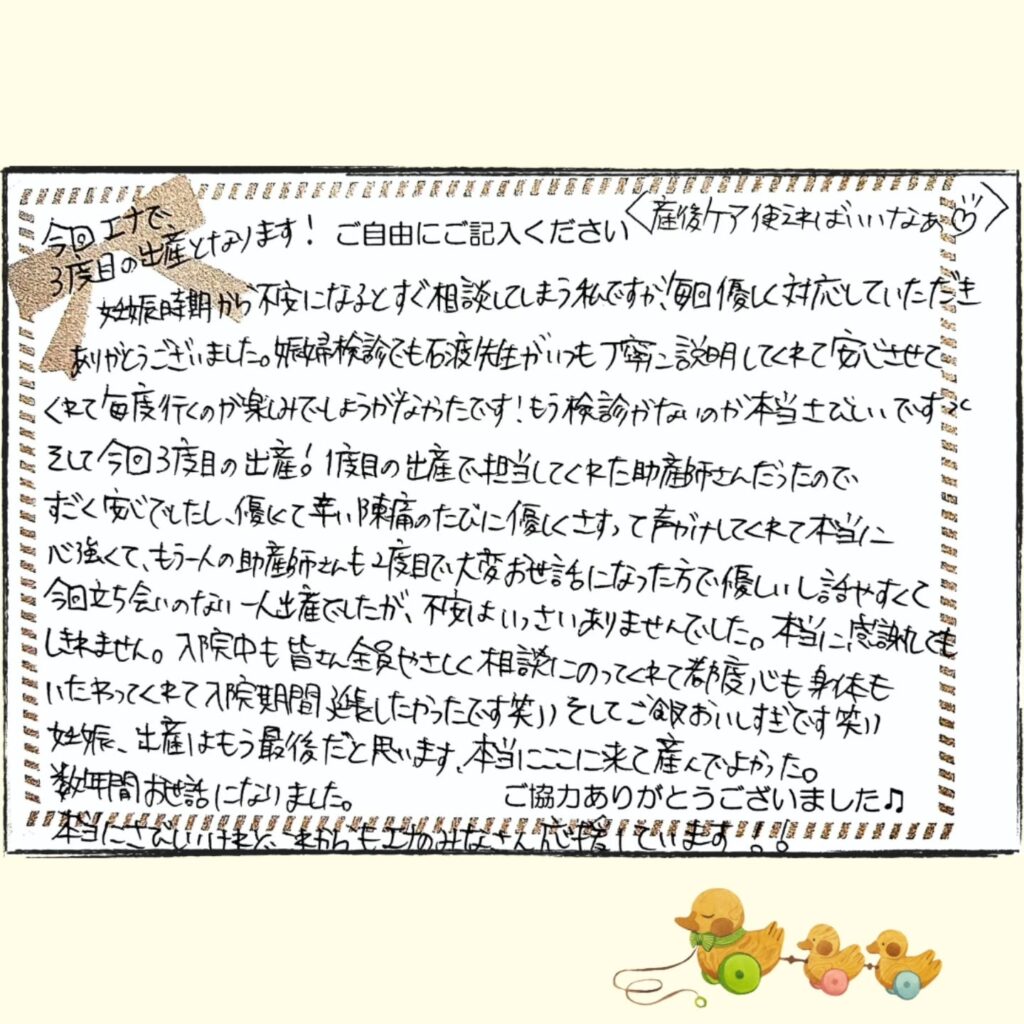 今回エナで
3度目の出産となります！
ご自由にご記入ください
産後ケア使えればいいなぁ♡
妊娠時期から不安になるとすぐ相談してしまう私ですが、毎回優しく対応していただき
ありがとうございました。妊婦検診でも石渡先生がいつも丁寧に説明してくれて安心させて
くれて毎度行くのが楽しみでしょうがなかったです！もう検診がないのが本当さびしいです
そして今回3度目の出産！1度目の出産で担当してくれた助産師さんだったので
すごく安心でしたし、優しくて辛い陣痛のたびに優しくさすって声がけしてくれて本当に
心強くて、もう一人の助産師さんも2度目で大変お世話になった方で優しいし話やすくて
今回立ち会いのない一人出産でしたが、不安はいっさいありませんでした。本当に感謝しても
しきれません。入院中も皆さん全員やさしく相談にのってくれて都度心も身体も
いたわってくれて入院期間延長したかったです笑)) そしてご飯おいしすぎです笑))
妊娠、出産はもう最後だと思います、本当にここに来て産んでよかった。
数年間お世話になりました。
ご協力ありがとうございました♫
本当にさびしいけれど、これからもエナのみなさん応援しています！！